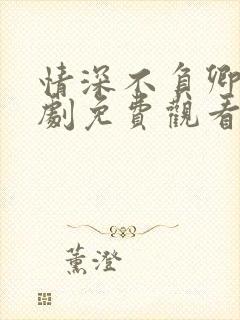 情深不負卿
劇免費觀看
薰澄